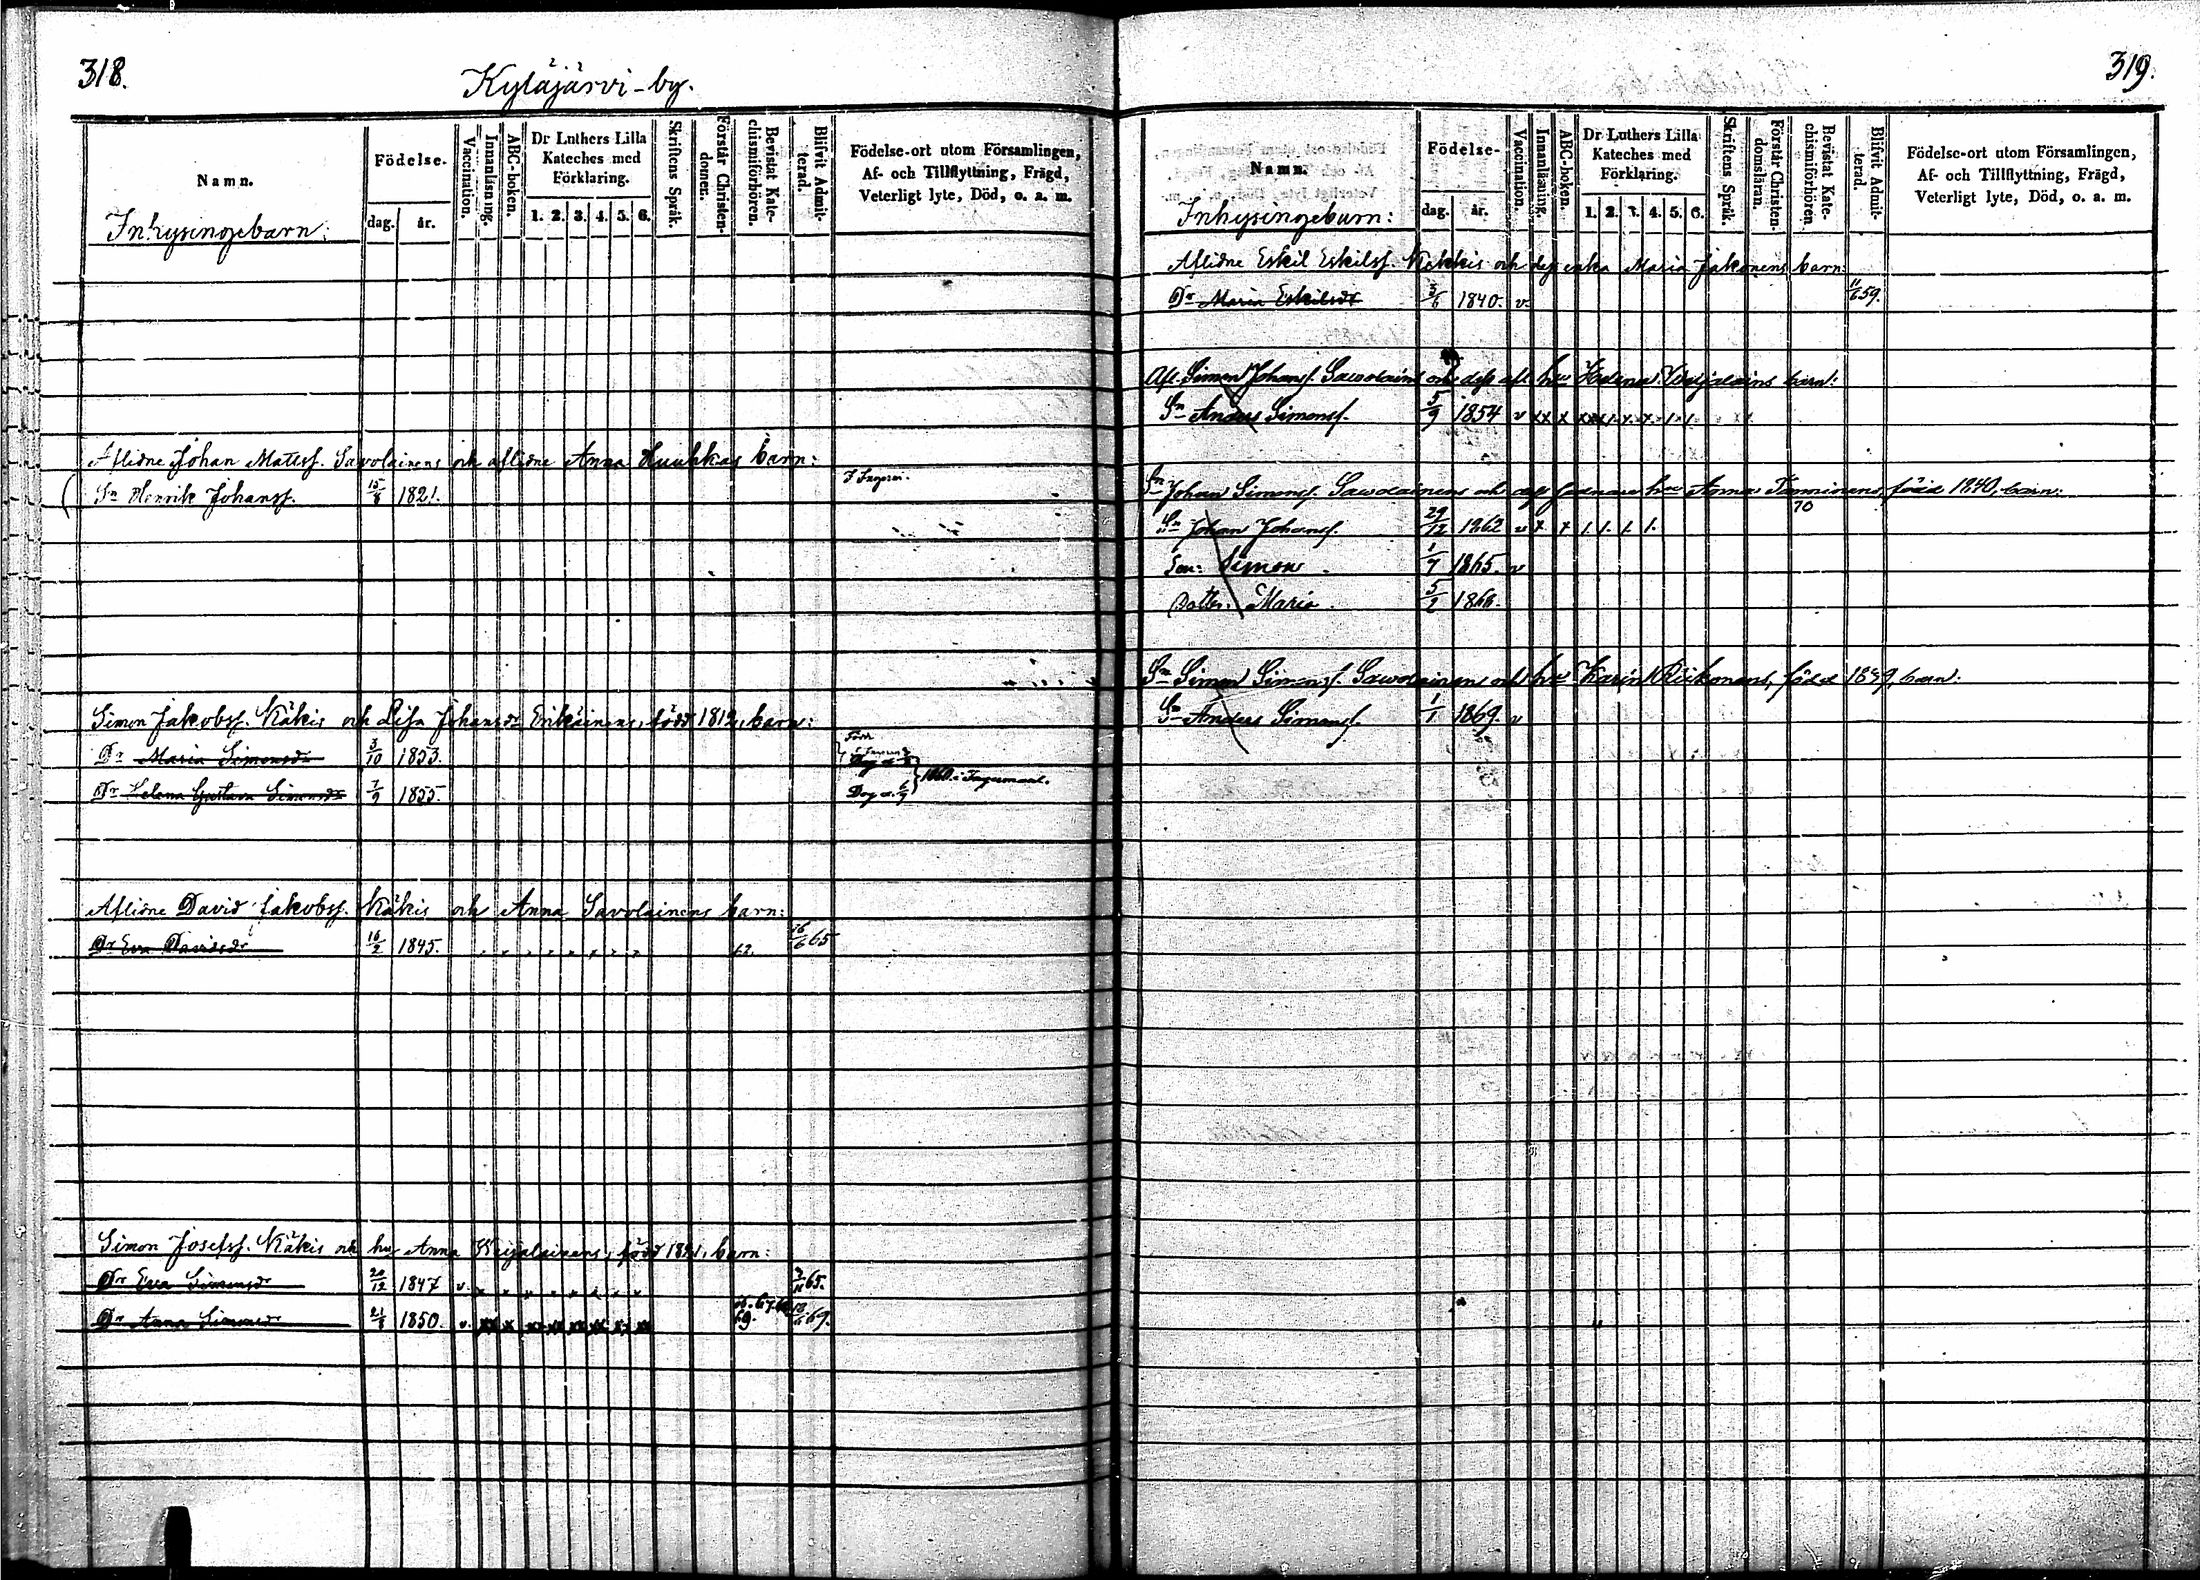 318.
Kyläjärvi-by.
Namn.
Inhysingebarn:
Födelse.
dag. år.
Vaccination.
Innanläsning.
ABC-boken.
Dr Luthers Lilla Kateches med Förklaring.
1. 2. 3. 4. 5. 6.
Skriftens Språk.
Förstår Christendomen.
Bevistat Katechismiförhören.
Blifvit Admitterad.
Födelse-ort utom Församlingen,
Af- och Tillflyttning, Frägd,
Veterligt lyte, Död, o. a. m.
Aflidne Johan Mattsf. Savolainens och aflidne Anna Huuhkas barn:
Sn Henrik Johansf. 15/8 1821.
Simon Jakobsf. Käkis och Lisa Johansdr Erikäinens, född 1812, barn:
Dr Maria Simonsdr 3/10 1853.
Dr Helena Gustava Simonsdr 7/9 1855. Dog d. 1860 i Ingermanl.
Aflidne David Jakobsf. Käkis och Anna Savolainens barn:
Dr Eva Davidsdr 16/2 1845. 62. 16/6 65
Simon Josefsf. Käkis och hu Anna Weijalainens, född 1821, barn:
Dr Eva Simonsdr 20/12 1847 v. 65.
Dr Anna Simonsdr 1850. v. 69. 69.
319.
Namn.
Inhysingebarn:
Födelse-
dag. år.
Vaccination.
Innanläsning.
ABC-boken.
Dr Luthers Lilla Kateches med Förklaring.
1. 2. 3. 4. 5. 6.
Skriftens Språk.
Förstår Christendomsläran.
Bevistat Katechismiförhören.
Blifvit Admitterad.
Födelse-ort utom Församlingen,
Af- och Tillflyttning, Frägd,
Veterligt lyte, Död, o. a. m.
Aflidne Eskil Eskilsf. Kekkis och dess enka Maria Jakonens barn:
Dr Maria Eskilsdr 3/6 1840. v. 11/6 59.
Afl. Simon Johansf. Sawolains och dess afl. hu Helena Weijalains barn:
Sn Anders Simonsf. 5/9 1854 v xx x
Sn Johan Simonsf. Sawolainens och dess hu Anna Tanninens, född 1840, barn:
70
Sn Johan Johansf. 29/12 1862 v x x 1. 1. 1. 1.
Son: Simon 1/7 1865. v
Dotter: Maria. 5/2 1868.
Sn Simon Simonsf. Sawolainens och hu Karin Riikonens, född 1849, barn:
Sn Anders Simonsf. 1/1 1869. v